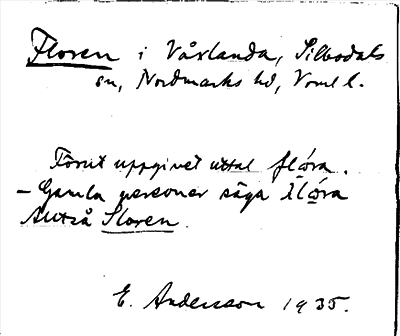 Floren i Vårlanda, Silbodals
sn, Nordmarks hd, Vrml l.
Förut uppgivet uttal flóra.
– Gamla personer säga slóra
Alltså Sloren.
E. Andersson 1935.